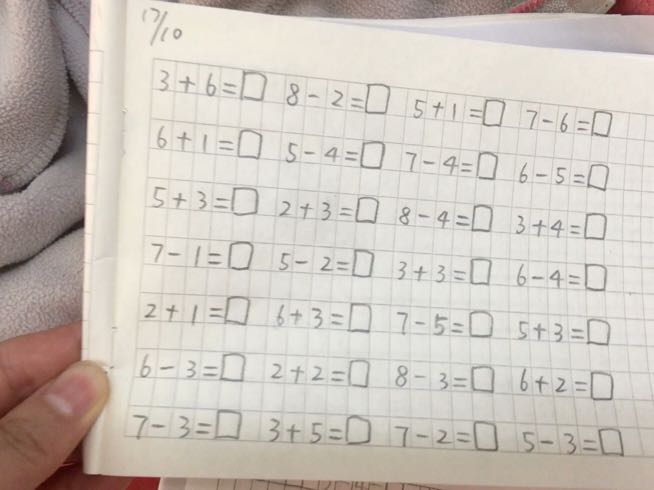 17/10
3+6=□ 8-2=□ 5+1=□ 7-6=□
6+1=□ 5-4=□ 7-4=□ 6-5=□
5+3=□ 2+3=□ 8-4=□ 3+4=□
7-1=□ 5-2=□ 3+3=□ 6-4=□
2+1=□ 6+3=□ 7-5=□ 5+3=□
6-3=□ 2+2=□ 8-3=□ 6+2=□
7-3=□ 3+5=□ 7-2=□ 5-3=□